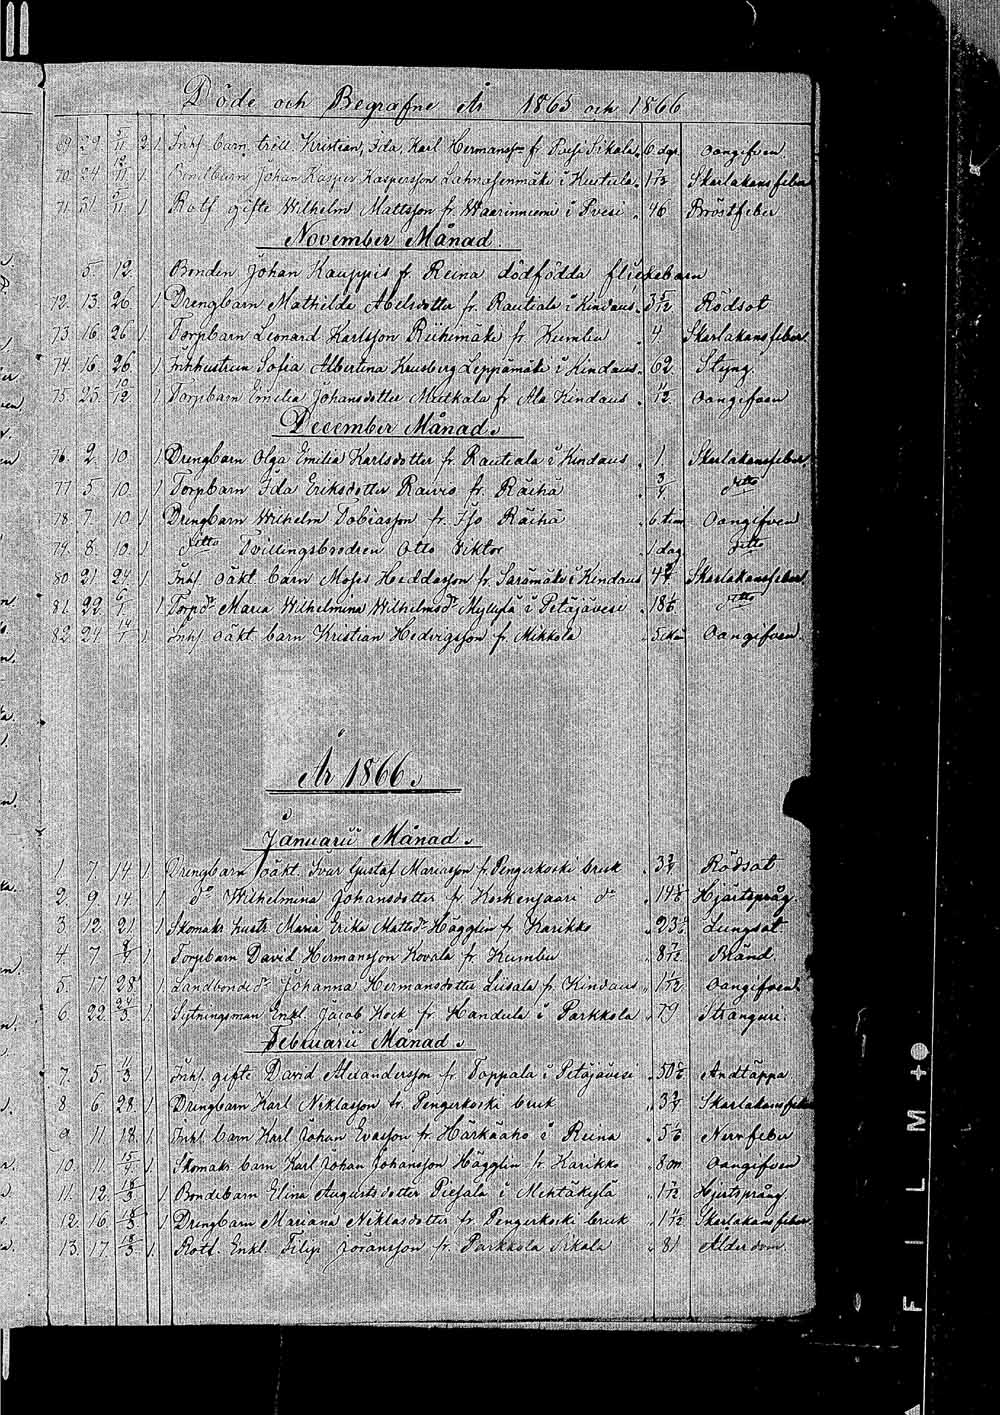 Döde och Begrafne År 1865 och 1866
69. 29. 5/11 2. 1. Inhs barn, tvill. Kristian, Ida, Karl Hermanss fr. Sikala 6 dgr oangifven.
70. 24. 12/11 1. Johan Kasper Kaspersson Lahnasenmäki i Huitula 1 7/12 Skarlakansfeber
71. 31. 5/11 1. Rotf. gifte Wilhelm Mattsson fr. Waarinniemi i Pvesi 46 Bröstfeber
November Månad.
5. 12. Bonden Johan Kauppis fr. Reina dödfödda flickobarn
72. 13. 26 1 Drengbarn Mathilda Abelsdotter fr. Rautiala i Kindaus 3 5/12 Rödsot
73. 16. 26 1. Torpbarn Leonard Karlsson Riihimäki fr. Kumbu 4. Skarlakansfeber.
74. 16. 26 1 Inhhustrun Sofia Albertina Krusberg Leppämäki i Kindaus 62. Styng.
75. 25. 10/12 1 Torpbarn Emilia Johansdotter Mutkala fr Ala Kindaus 1/12 oangifven
December Månad.
76. 2. 10. 1. Drengbarn Olga Emilia Karlsdotter fr. Rautiala i Kindaus 1. Skarlakansfeber.
77 5. 10. 1 Torpbarn Ida Eriksdotter Rawio fr. Räihä 3/4 ditto
78. 7. 10. 1. Drengbarn Wilhelm Tobiasson fr. Iso Räihä 6 tim Oangifven
79. 8. 10. 1. ditto Tvillingsbrodren Otto Viktor 1 dag ditto
80 21. 24. 1. Inhs oäkt barn Moses Heddasson fr. Saramäki i Kindaus 4 Skarlakansfeber
81. 22. 6/1 1. Torpdr Maria Wilhelmina Wilhelmsdr Myllylä i Petäjävesi 18 ditto
82. 24. 14/1 1. Inhs oäkt barn Kristian Hedvigsson fr. Mikkola Oangifven.
År 1866.
Januarii Månad.
1. 7. 14. 1. Drengbarn oäkt. Ivar Gustaf Mariasson fr. Pengerkoski bruk 3 Rödsot
2. 9. 14. 1 do Wilhelmina Johansdotter fr Koskensaari do 14 Hjertspång.
3. 12. 21. 1 Skomaks hustr. Maria Erika Mattsdr Hägglin fr. Karikko 23 Lungsot
4. 7 1. Torpbarn David Hermansson Kovala fr. Kumbu 8 7/12 Bränd.
5. 17. 28 1. Landbonded. Johanna Hermansdotter Lusala fr. Kindaus 1 1/12 oangifven.
6 22. 24/3 1. Sytningsman Enkl. Jacob Kock fr Handula i Parkkola 79 Stranguri.
Februarii Månad.
7. 5. 4/3 1 Inhs. gifte David Alexandersson fr Toppala i Petäjävesi 50 Andtäppa
8. 6. 28. 1. Drengbarn Karl Niklasson fr. Pengerkoski bruk 3 Skarlakansfeber
9. 11. 18. 1. Inhs barn Karl Johan Evasson fr. Härkäaho i Reina 5 Nervfeber
10. 11. 15/4 1. Skomaks barn Karl Johan Johansson Hägglin fr. Karikko 8 m. oangifven
11. 12. 18/3 1. Bondebarn Elina Augustsdotter Piesala i Mehtäkylä 1 7/12 Hjertspång.
12. 16. 18/3 1. Drengbarn Mariana Niklasdotter fr. Pengerkoski bruk 1 Skarlakansfeber.
13. 17. 18/3 1. Rotf. Enkl. Filip Joransson fr. Parkkola Sikala 81 Ålderdom
FILM